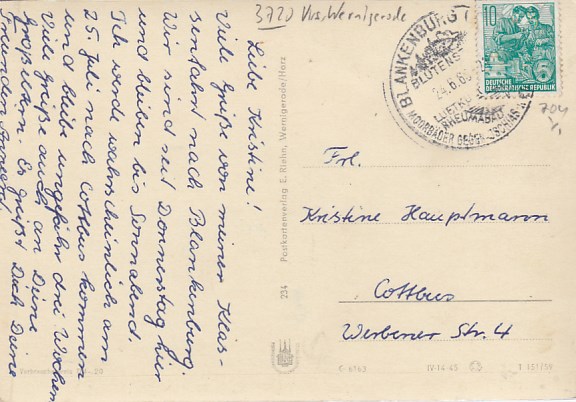 3720 Krs. Wernigerode
Liebe Kristine!
Viele Grüße von meiner Klas-
senfahrt nach Blankenburg.
Wir sind seit Donnerstag hier
und bleiben bis Sonnabend.
Ich werde wahrscheinlich am
25. Juli nach Cottbus kommen
und bleibe ungefähr drei Wochen.
Viele Grüße auch an Deine
Großeltern. Es grüßt Dich Deine
Freundin
234 Postkartenverlag E. Riehn, Wernigerode/Harz
BLANKENBURG
BLÜTENS
24.6.60
MOORBÄDER
10
DEUTSCHE
DEMOKRATISCHE REPUBLIK
704
Frl.
Kristine Hauptmann
Cottbus
Werbener Str. 4
IV-14-45